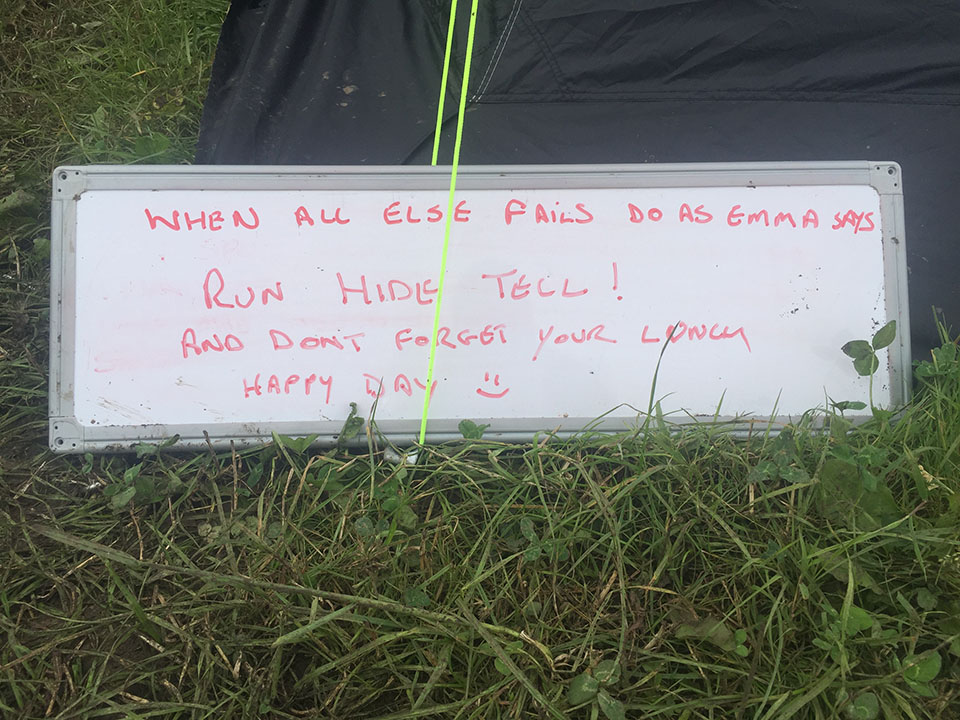 WHEN ALL ELSE FAILS DO AS EMMA SAYS
RUN HIDE TELL!
AND DONT FORGET YOUR LUNCH
HAPPY DAY